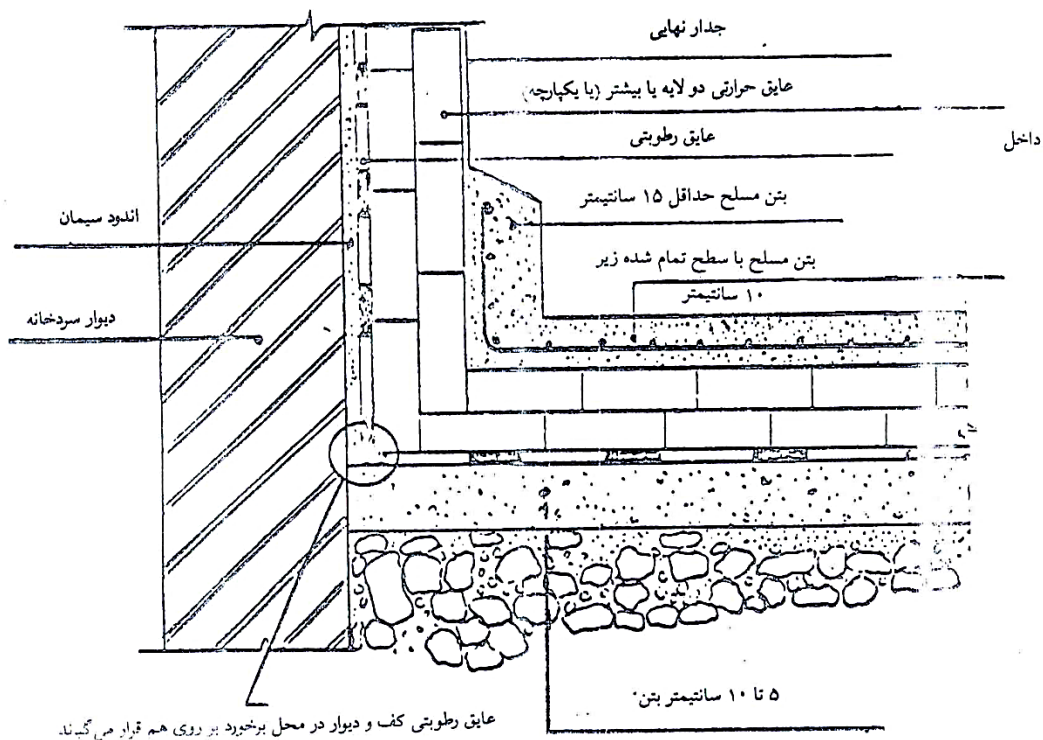 جدار نهایی
عایق حرارتی دو لایه یا بیشتر (یا یکپارچه)
داخل
عایق رطوبتی
بتن مسلح حداقل ۱۵ سانتیمتر
اندود سیمان
بتن مسلح با سطح تمام شده زیر
۱۰ سانتیمتر
دیوار سردخانه
۵ تا ۱۰ سانتیمتر بتن
عایق رطوبتی کف و دیوار در محل برخورد بر روی هم قرار می‌گیرند